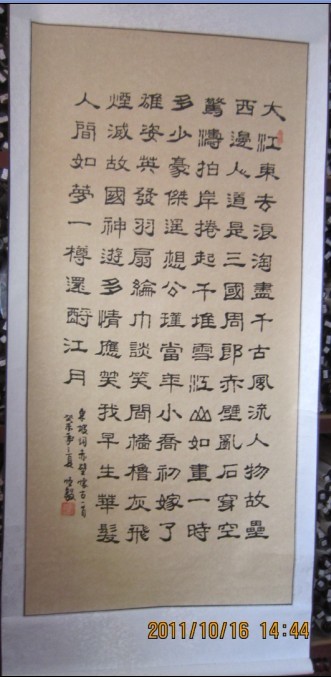 大江東去浪淘盡千古風流人物故壘
西邊人道是三國周郎赤壁亂石穿空
驚濤拍岸捲起千堆雪江山如畫一時
多少豪傑遥想公瑾當年小喬初嫁了
雄姿英發羽扇綸巾談笑間檣櫓灰飛
煙滅故國神遊多情應笑我早生華髮
人間如夢一樽還酹江月
東坡詞赤壁懷古一首
癸未年之夏
2011/10/16 14:44